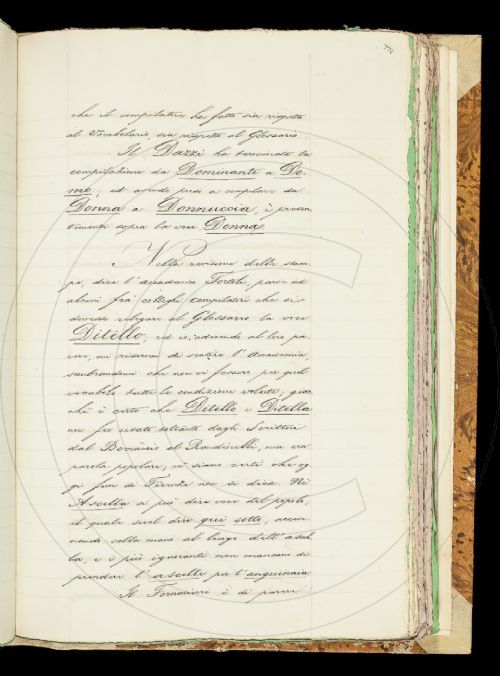 che il compilatore ha fatto sia rispetto
al Vocabolario, sia rispetto al Glossario.
Il Dazzi ha terminato la
compilazione da Dominante a Do-
mo, ed avendo preso a compilare da
Donna a Donnuccia, è presen-
temente sopra la voce Donna.
Nella revisione delle stam-
pe, dice l'accademico Tortoli, parve ad
alcuni fra' colleghi compilatori che si
dovesse relegare al Glossario la voce
Ditello, ed io, cedendo al loro pa-
rere, mi riservai di sentire l'Accademia,
sembrandomi che non vi fossero per quel
vocabolo tutte le condizioni volute; giac-
chè è certo che Ditello e Ditella
non fu usata soltanto dagli Scrittori
dal Boccaccio al Rondinelli, ma era
parola popolare; nè siamo certi che og-
gi fuor di Firenze non si dica. Nè
Ascella si può dire voce del popolo,
il quale suol dire qui sotto, accen-
nando colla mano al luogo dell'ascel-
la, e i più ignoranti non mancano di
prendere l'ascella per l'anguinaia
Il Fornaciari è di parere